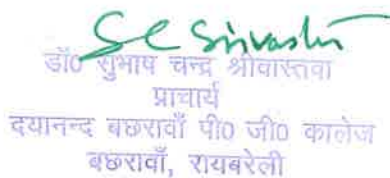 SC Srivastu
डॉ0 सुभाष चन्द्र श्रीवास्तवा
प्राचार्य
दयानन्द बछरावाँ पी0 जी0 कालेज
बछरावाँ, रायबरेली